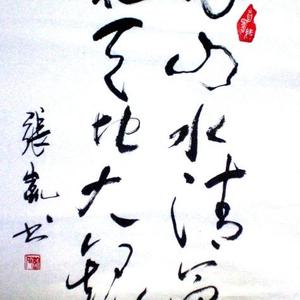 山水清
天地大觀
張凱書